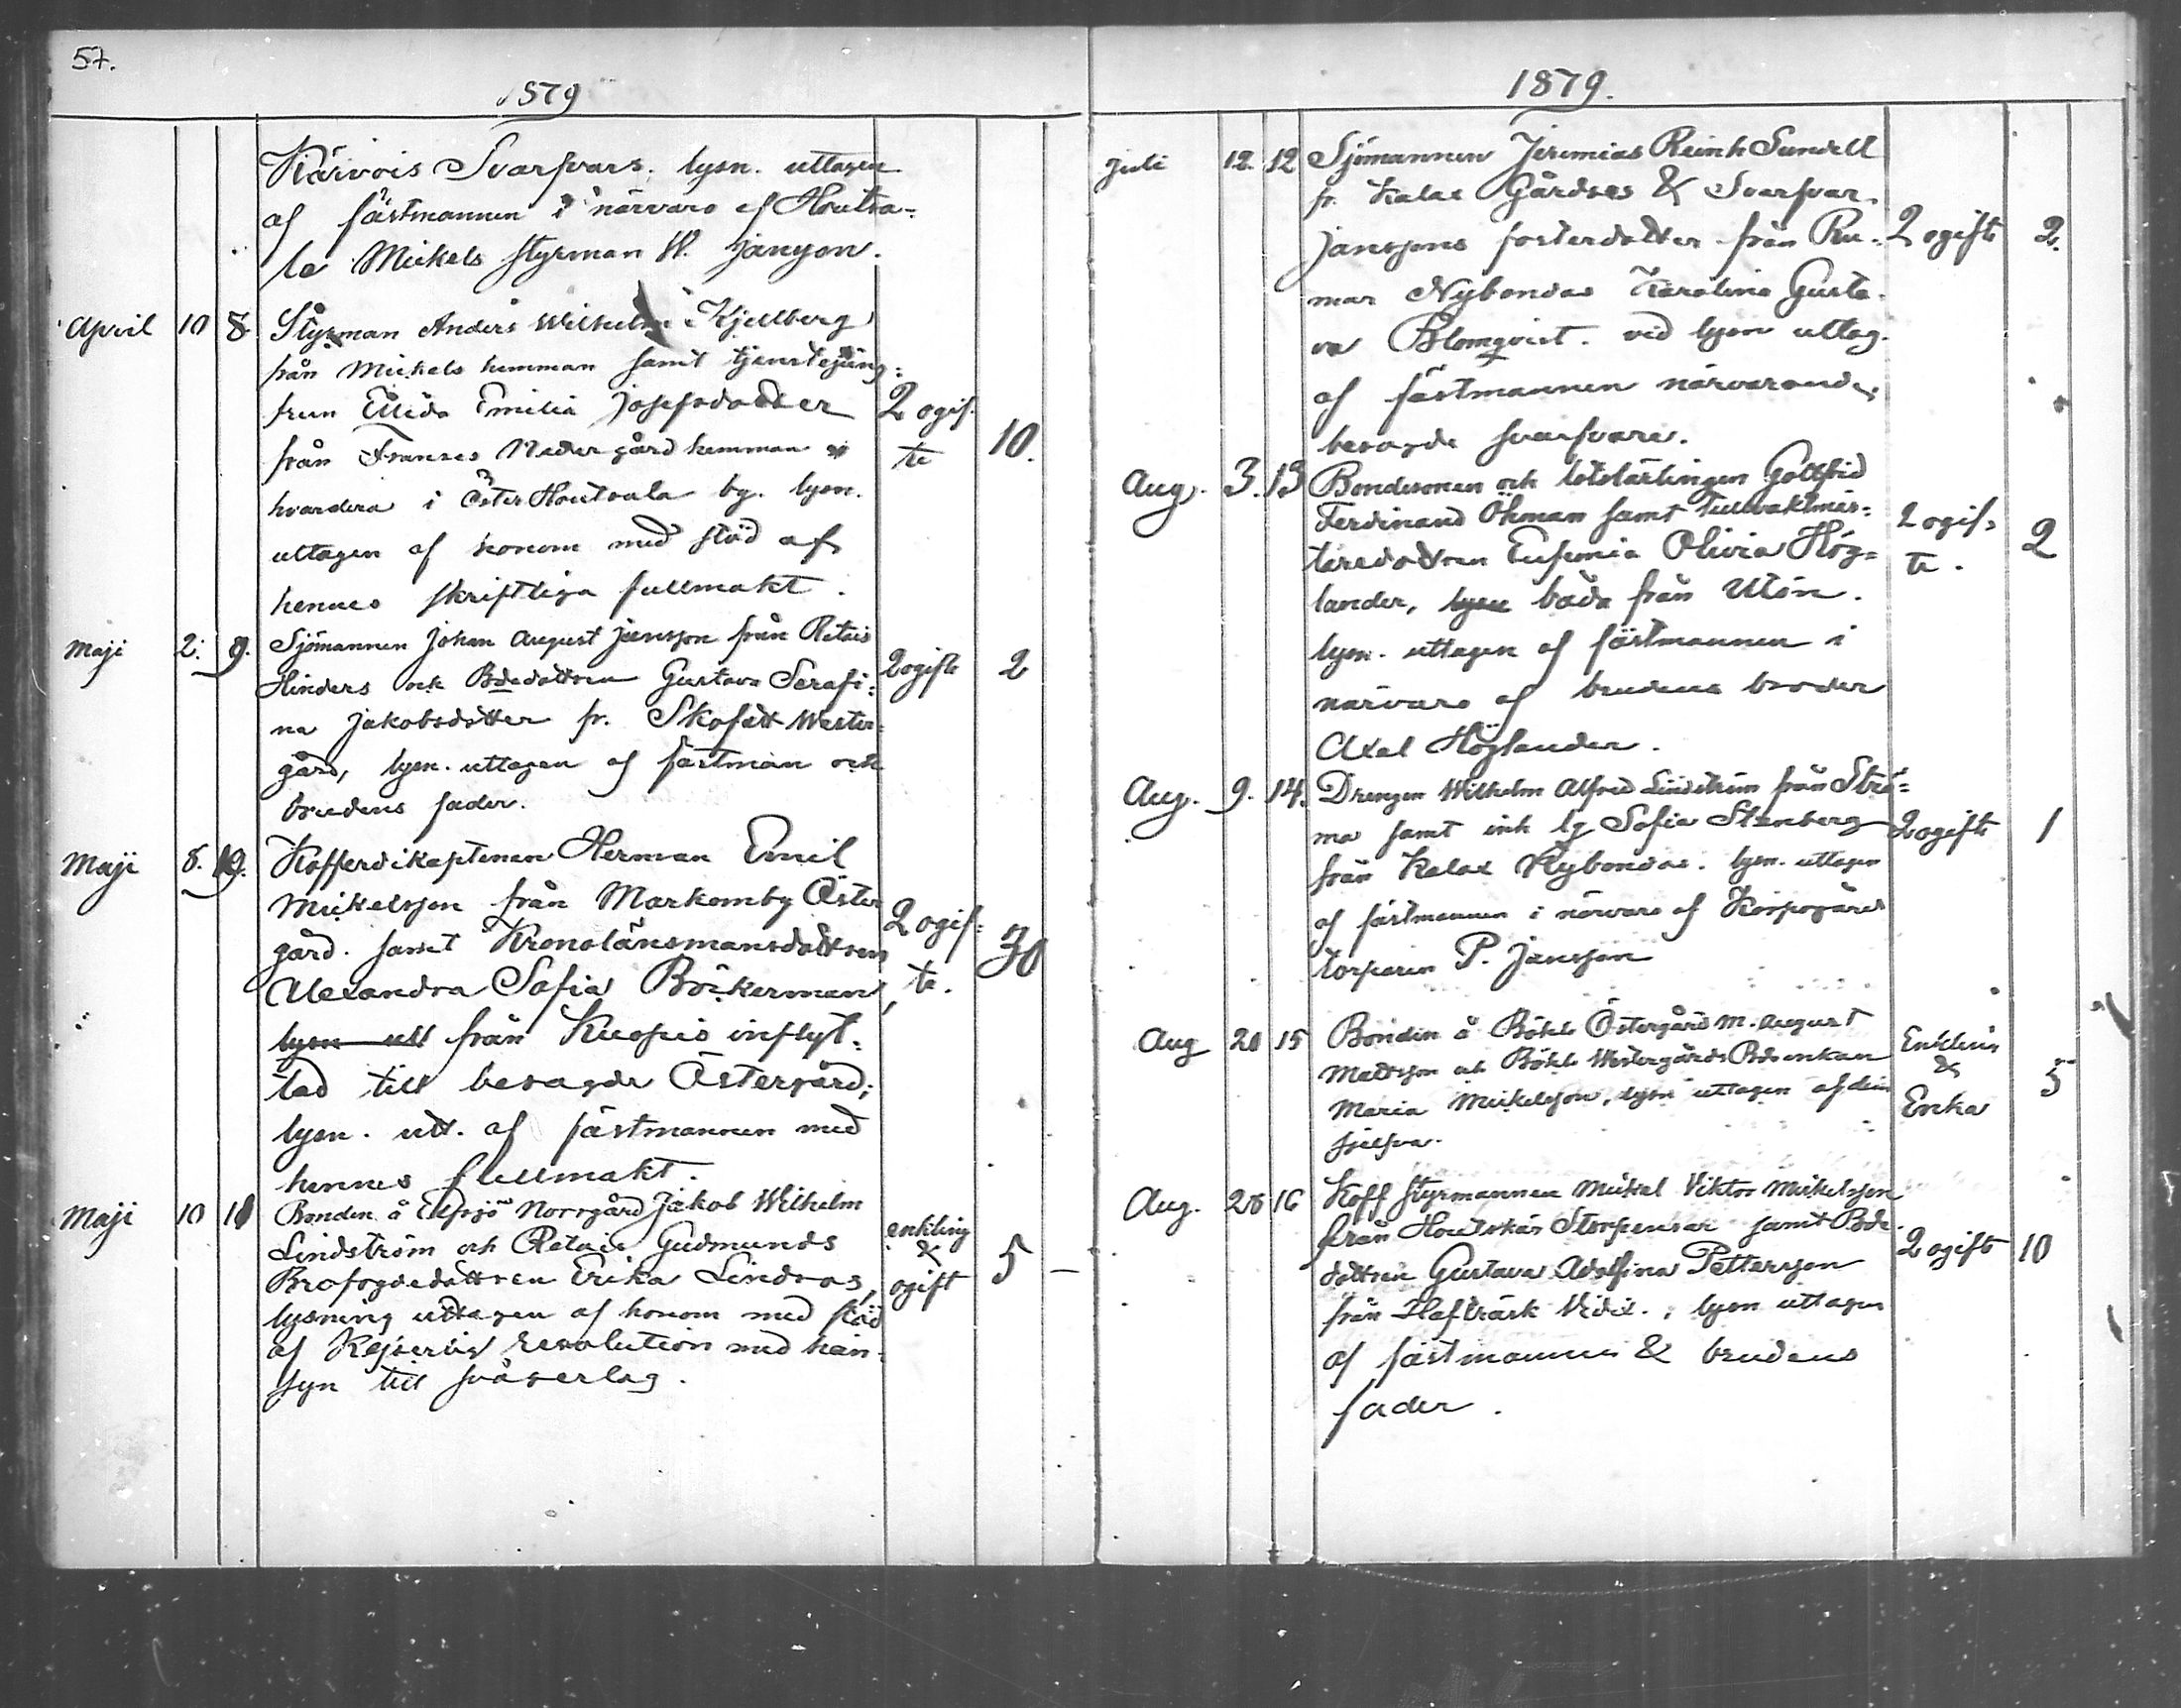 57.
1879
Kärvois Svarfvars. lysn. uttagen
af fästmannen i närvaro af Houtsa-
la Mickels styrman W. Jansson.
April 10 8 Styrman Anders Wilhelm Kjellberg
från Mickels hemman samt tjenstejung-
frun Elida Emilia Josefsdotter 2 ogif-
från Franses Nedergård hemman te 10.
hvardera i Öster Houtsala by. lysn.
uttagen af honom med stöd af
hennes skriftliga fullmakt.
Maji 2. 9. Sjömannen Johan August Jansson från Retais
Hinders och Bdedottren Gustava Serafi- 2 ogifte 2
na Jakobsdotter fr. Skofatt Wester-
gård, lysn. uttagen af fästman och
brudens fader.
Maji 8. Kofferdikaptenen Herman Emil
Mickelsson från Markomby Öster
gård. samt Kronolänsmansdottren 2 ogif- 30
Alexandra Sofia Böckerman, te.
lysn utt från Kuopio inflyt-
tad till besagde Östergård;
lysn. utt. af fästmannen med
hennes fullmakt.
Maji 10 11 Bonden å Elfsjö Norrgård Jakob Wilhelm
Lindström och Retais Gudmunds enkling &
Brofogdedottren Erika Lindroos, ogift 5 —
lysning uttagen af honom med stöd
af Kejserlig resolution med hän-
syn till svågerlag.
1879.
Juli 12. 12 Sjömannen Jeremias Reinh Sundell
fr. Kalax Gårdses & Svarfvar
Janssons fosterdotter från Ru- 2 ogifte 2.
mar Nybondas Karolina Gusta-
va Blomqvist. vid lysn uttag.
af fästmannen närvarande
besagde svarfvare.
Aug. 3. 13 Bondesonen och lotslärlingen Gottfrid
Ferdinand Öhman samt Tullvaktmäs- 2 ogif-
taredottren Eufemia Olivia Hög- te. 2
lander, lysn båda från Utön.
lysn. uttagen af fästmannen i
närvaro af brudens broder
Axel Höglander.
Aug. 9. 14. Drengen Wilhelm Alfred Lindström från Strö-
ma samt inh Sofia Stenberg 2 ogifte 1
från Kalax Nybondas. lysn. uttagen
af fästmannen i närvaro af Korpogård
torparen P. Jansson
Aug 20 15 Bonden å Bökle Östergård M. August Enkling
Mattsson och Bökle Westergårds Bdeenkan & 5
Maria Mickelsson, lysn uttagen af dem Enka
sjelfva.
Aug. 28 16 Koff styrmannen Mickel Viktor Mickelsson
från Houtskär Storpensar samt Bde-
dottren Gustava Adolfina Pettersson 2 ogifte 10
från Hafträsk lysn uttagen
af fästmannen & brudens
fader.